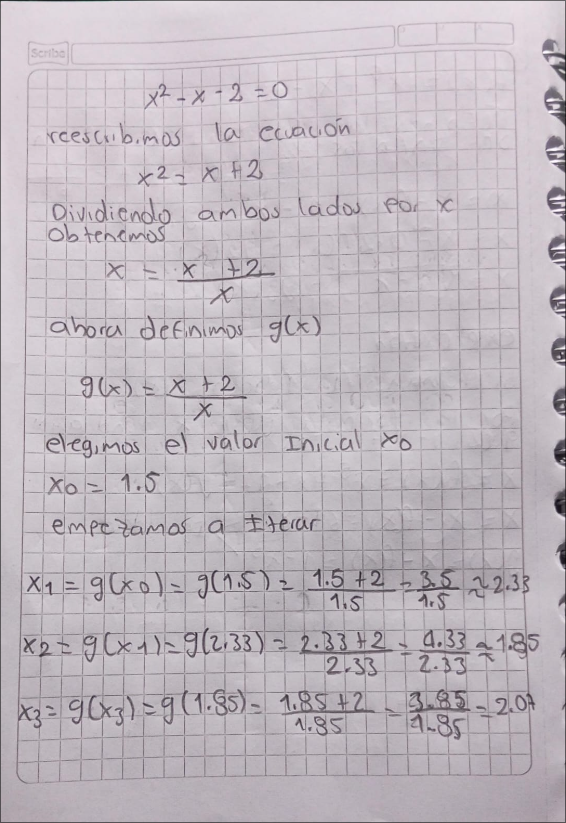 Scribe
x² - x - 2 = 0
reescribimos la ecuación
x² = x + 2
Dividiendo ambos lados por x
obtenemos
x = x + 2 / x
ahora definimos g(x)
g(x) = x + 2 / x
elegimos el valor Inicial x0
x0 = 1.5
empezamos a Iterar
x1 = g(x0) = g(1.5) = 1.5 + 2 / 1.5 = 3.5 / 1.5 ≈ 2.33
x2 = g(x1) = g(2.33) = 2.33 + 2 / 2.33 = 4.33 / 2.33 ≈ 1.85
x3 = g(x3) = g(1.85) = 1.85 + 2 / 1.85 = 3.85 / 1.85 = 2.07